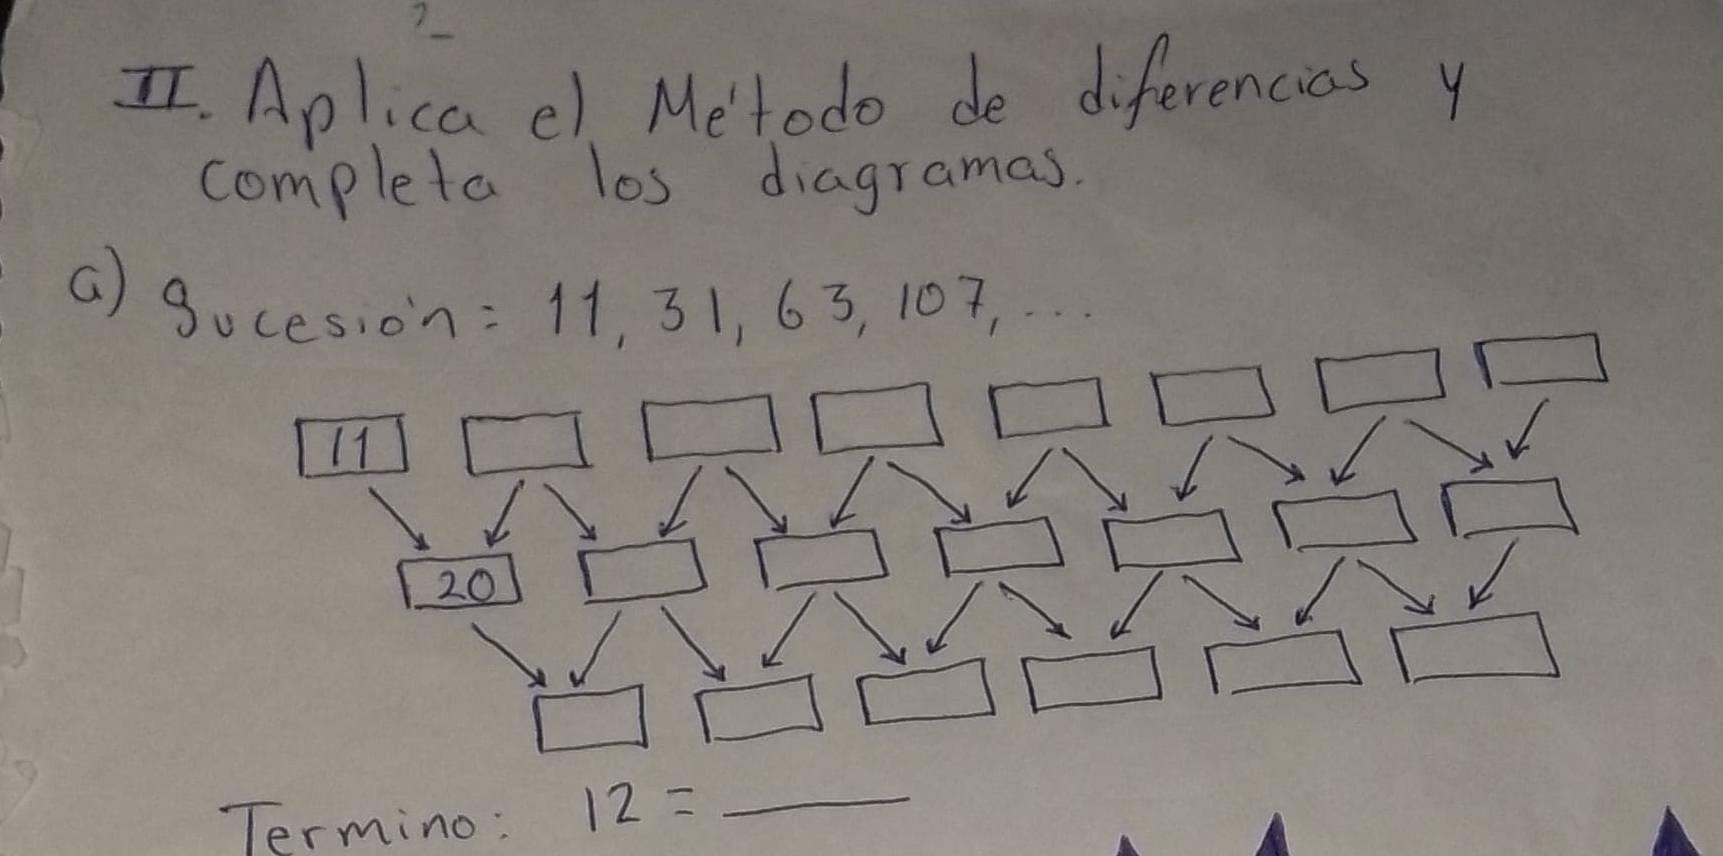 2
II. Aplica el Método de diferencias y
completa los diagramas.
a) Sucesión = 11, 31, 63, 107, ...
11
20
Termino: 12 = ____